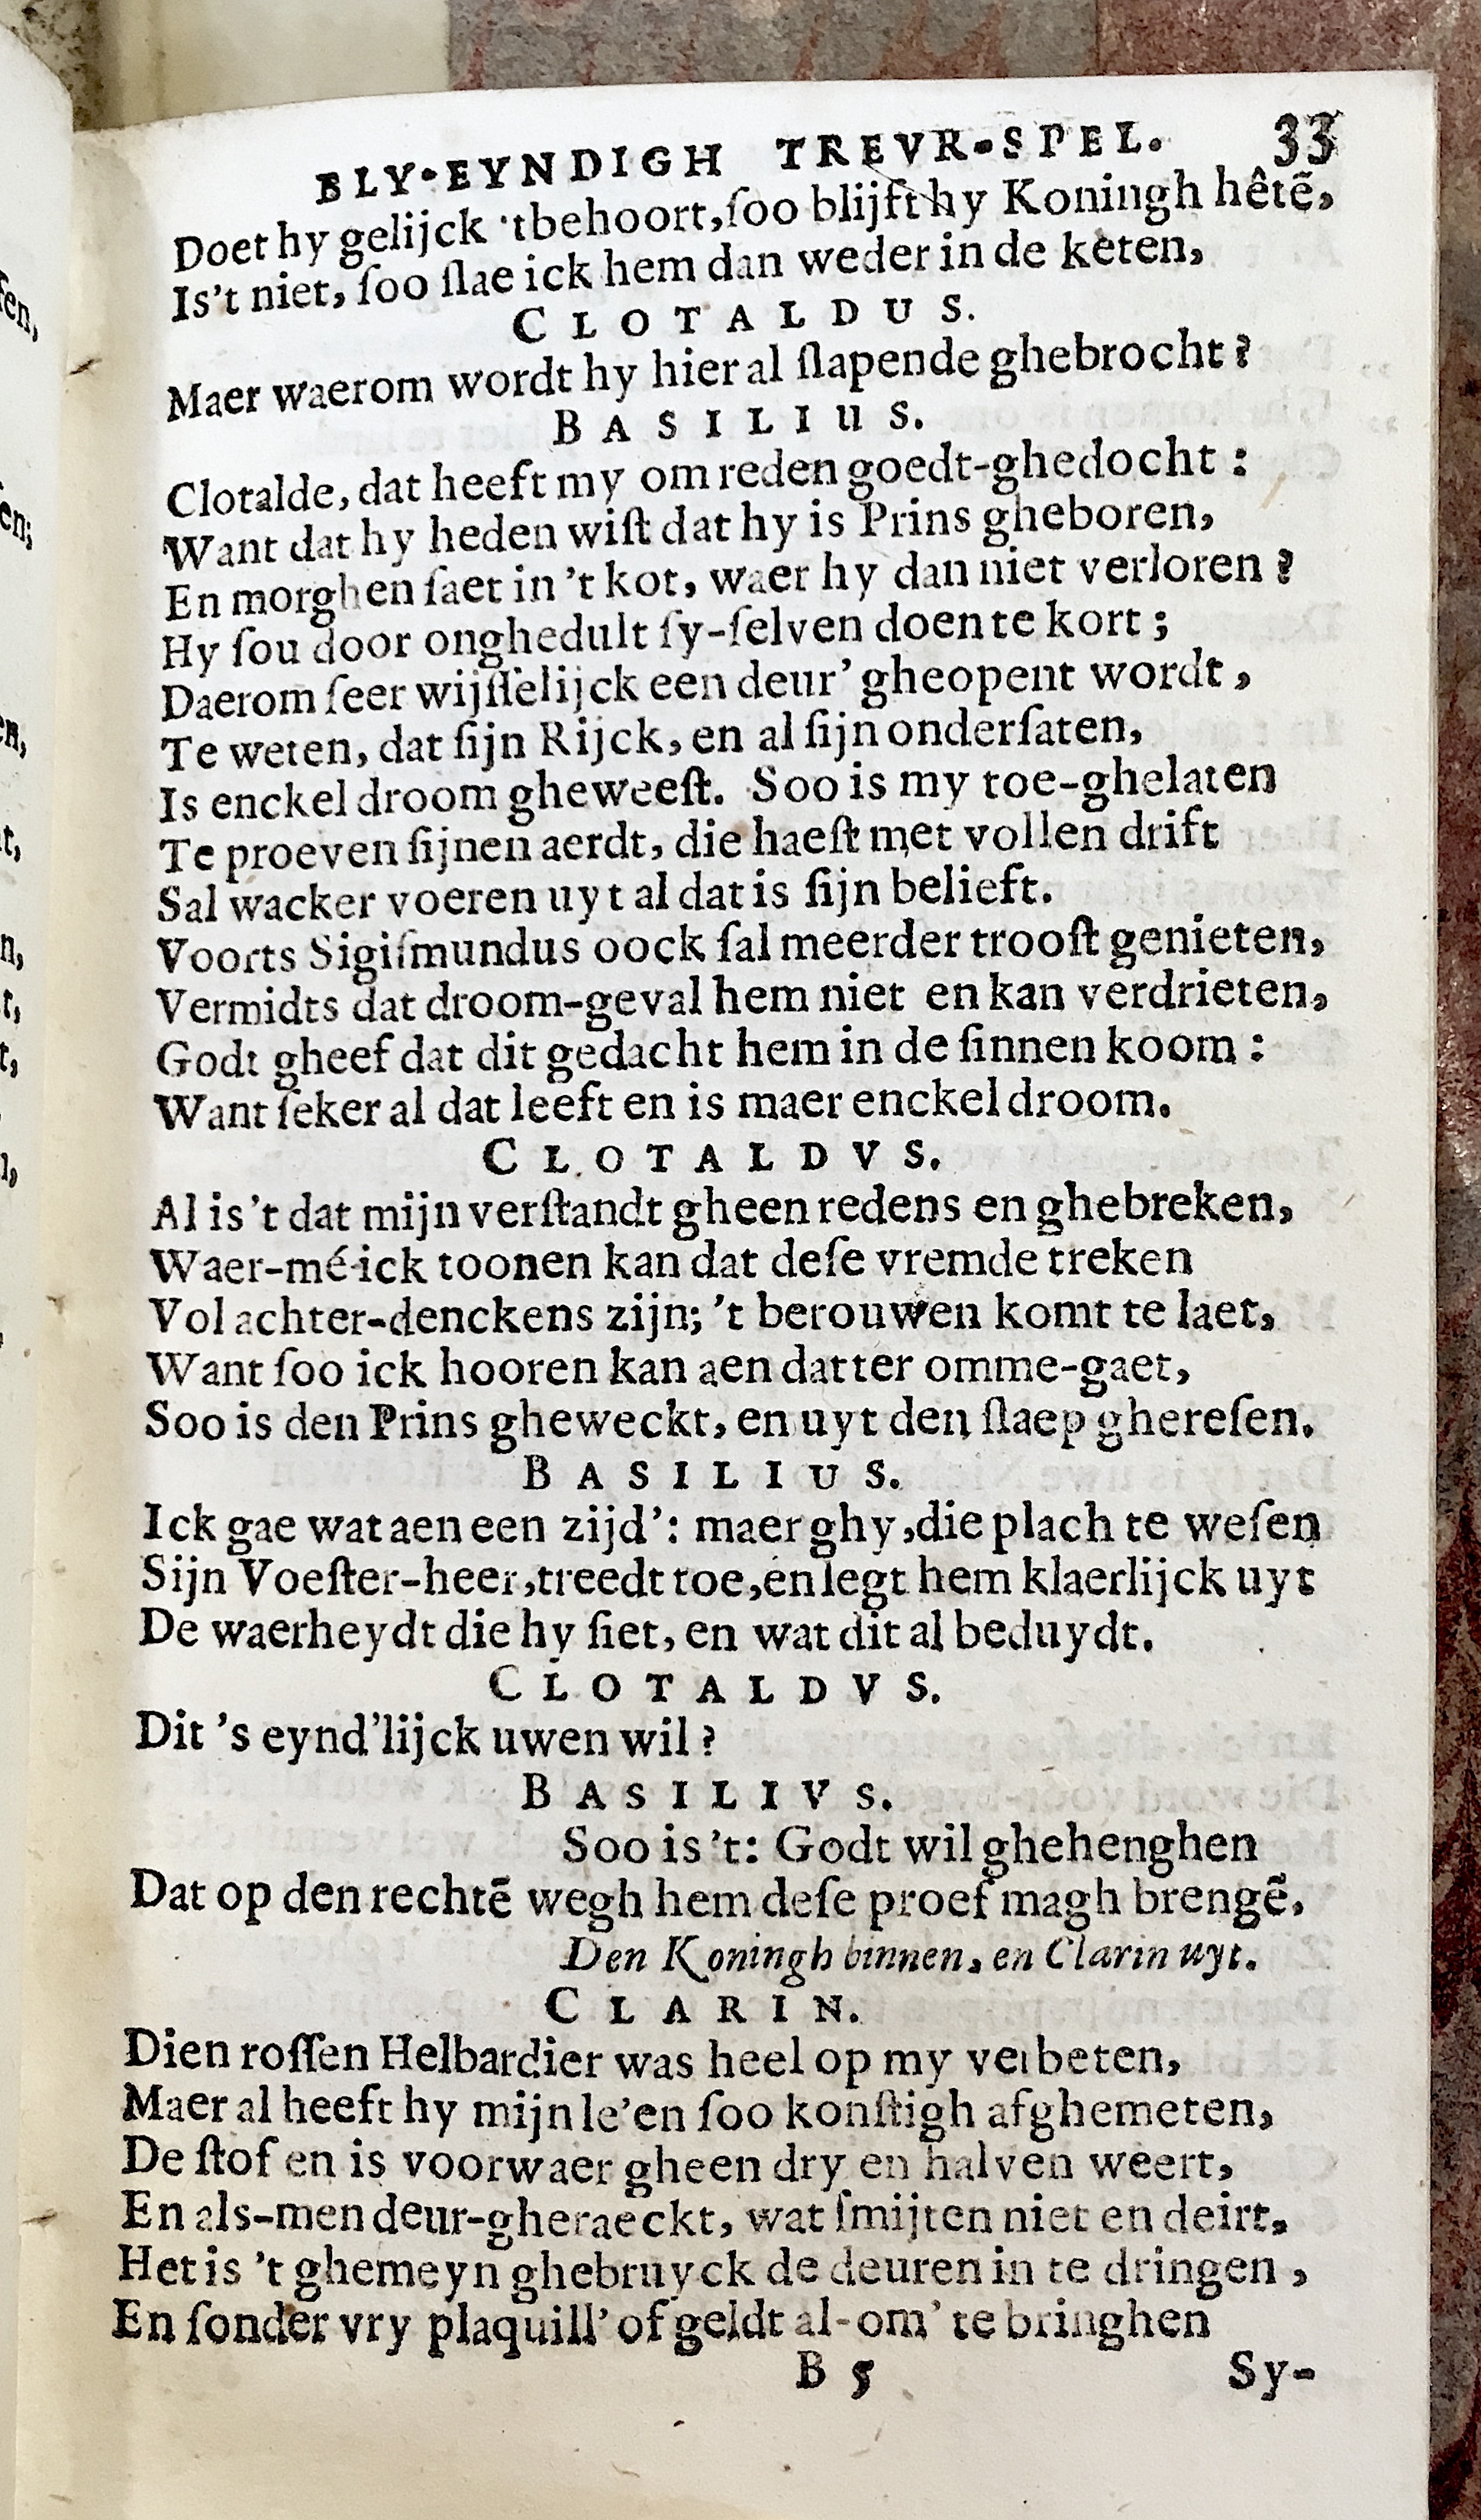 BLY-EYNDIGH TREVR-SPEL. 33
Doet hy gelijck 'tbehoort, ſoo blijft hy Koningh hêtē,
Is't niet, ſoo ſlae ick hem dan weder in de keten,
CLOTALDUS.
Maer waerom wordt hy hier al ſlapende ghebrocht?
BASILIUS.
Clotalde, dat heeft my om reden goedt-ghedocht:
Want dat hy heden wiſt dat hy is Prins gheboren,
En morghen ſaet in 't kot, waer hy dan niet verloren?
Hy ſou door onghedult ſy-ſelven doen te kort;
Daerom ſeer wijſſelijck een deur' gheopent wordt,
Te weten, dat ſijn Rijck, en al ſijn onderſaten,
Is enckel droom gheweeſt. Soo is my toe-ghelaten
Te proeven ſijnen aerdt, die haeſt met vollen drift
Sal wacker voeren uyt al dat is ſijn belieft.
Voorts Sigiſmundus oock ſal meerder trooſt genieten,
Vermidts dat droom-geval hem niet en kan verdrieten,
Godt gheef dat dit gedacht hem in de ſinnen koom:
Want ſeker al dat leeft en is maer enckel droom.
CLOTALDVS.
Al is 't dat mijn verſtandt gheen redens en ghebreken,
Waer-mé ick toonen kan dat deſe vremde treken
Vol achter-denckens zijn; 't berouwen komt te laet,
Want ſoo ick hooren kan aen datter omme-gaet,
Soo is den Prins gheweckt, en uyt den ſlaep ghereſen.
BASILIUS.
Ick gae wat aen een zijd': maer ghy, die plach te weſen
Sijn Voeſter-heer, treedt toe, en legt hem klaerlijck uyt
De waerheydt die hy ſiet, en wat dit al beduydt.
CLOTALDVS.
Dit 's eynd'lijck uwen wil?
BASILIVS.
Soo is 't: Godt wil ghehenghen
Dat op den rechtē wegh hem deſe proef magh brengē.
Den Koningh binnen, en Clarin uyt.
CLARIN.
Dien roſſen Helbardier was heel op my verbeten,
Maer al heeft hy mijn le'en ſoo konſtigh afghemeten,
De ſtof en is voorwaer gheen dry en halven weert,
En als-men deur-gheraeckt, wat ſmijten niet en deirt,
Het is 't ghemeyn ghebruyck de deuren in te dringen,
En ſonder vry plaquill' of geldt al-om' te bringhen
B 5 Sy-